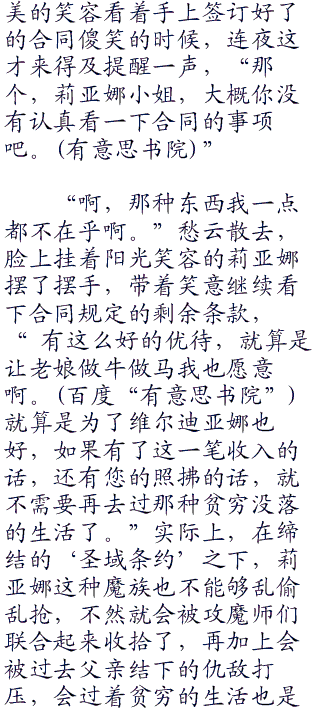 美的笑容看着手上签订好了
的合同傻笑的时候，连夜这
才来得及提醒一声，“那
个，莉亚娜小姐，大概你没
有认真看一下合同的事项
吧。(有意思书院)”
“啊，那种东西我一点
都不在乎啊。”愁云散去，
脸上挂着阳光笑容的莉亚娜
摆了摆手，带着笑意继续看
下合同规定的剩余条款，
“ 有这么好的优待，就算是
让老娘做牛做马我也愿意
啊。(百度“有意思书院”)
就算是为了维尔迪亚娜也
好，如果有了这一笔收入的
话，还有您的照拂的话，就
不需要再去过那种贫穷没落
的生活了。”实际上，在缔
结的‘圣域条约’之下，莉
亚娜这种魔族也不能够乱偷
乱抢，不然就会被攻魔师们
联合起来收拾了，再加上会
被过去父亲结下的仇敌打
压，会过着贫穷的生活也是